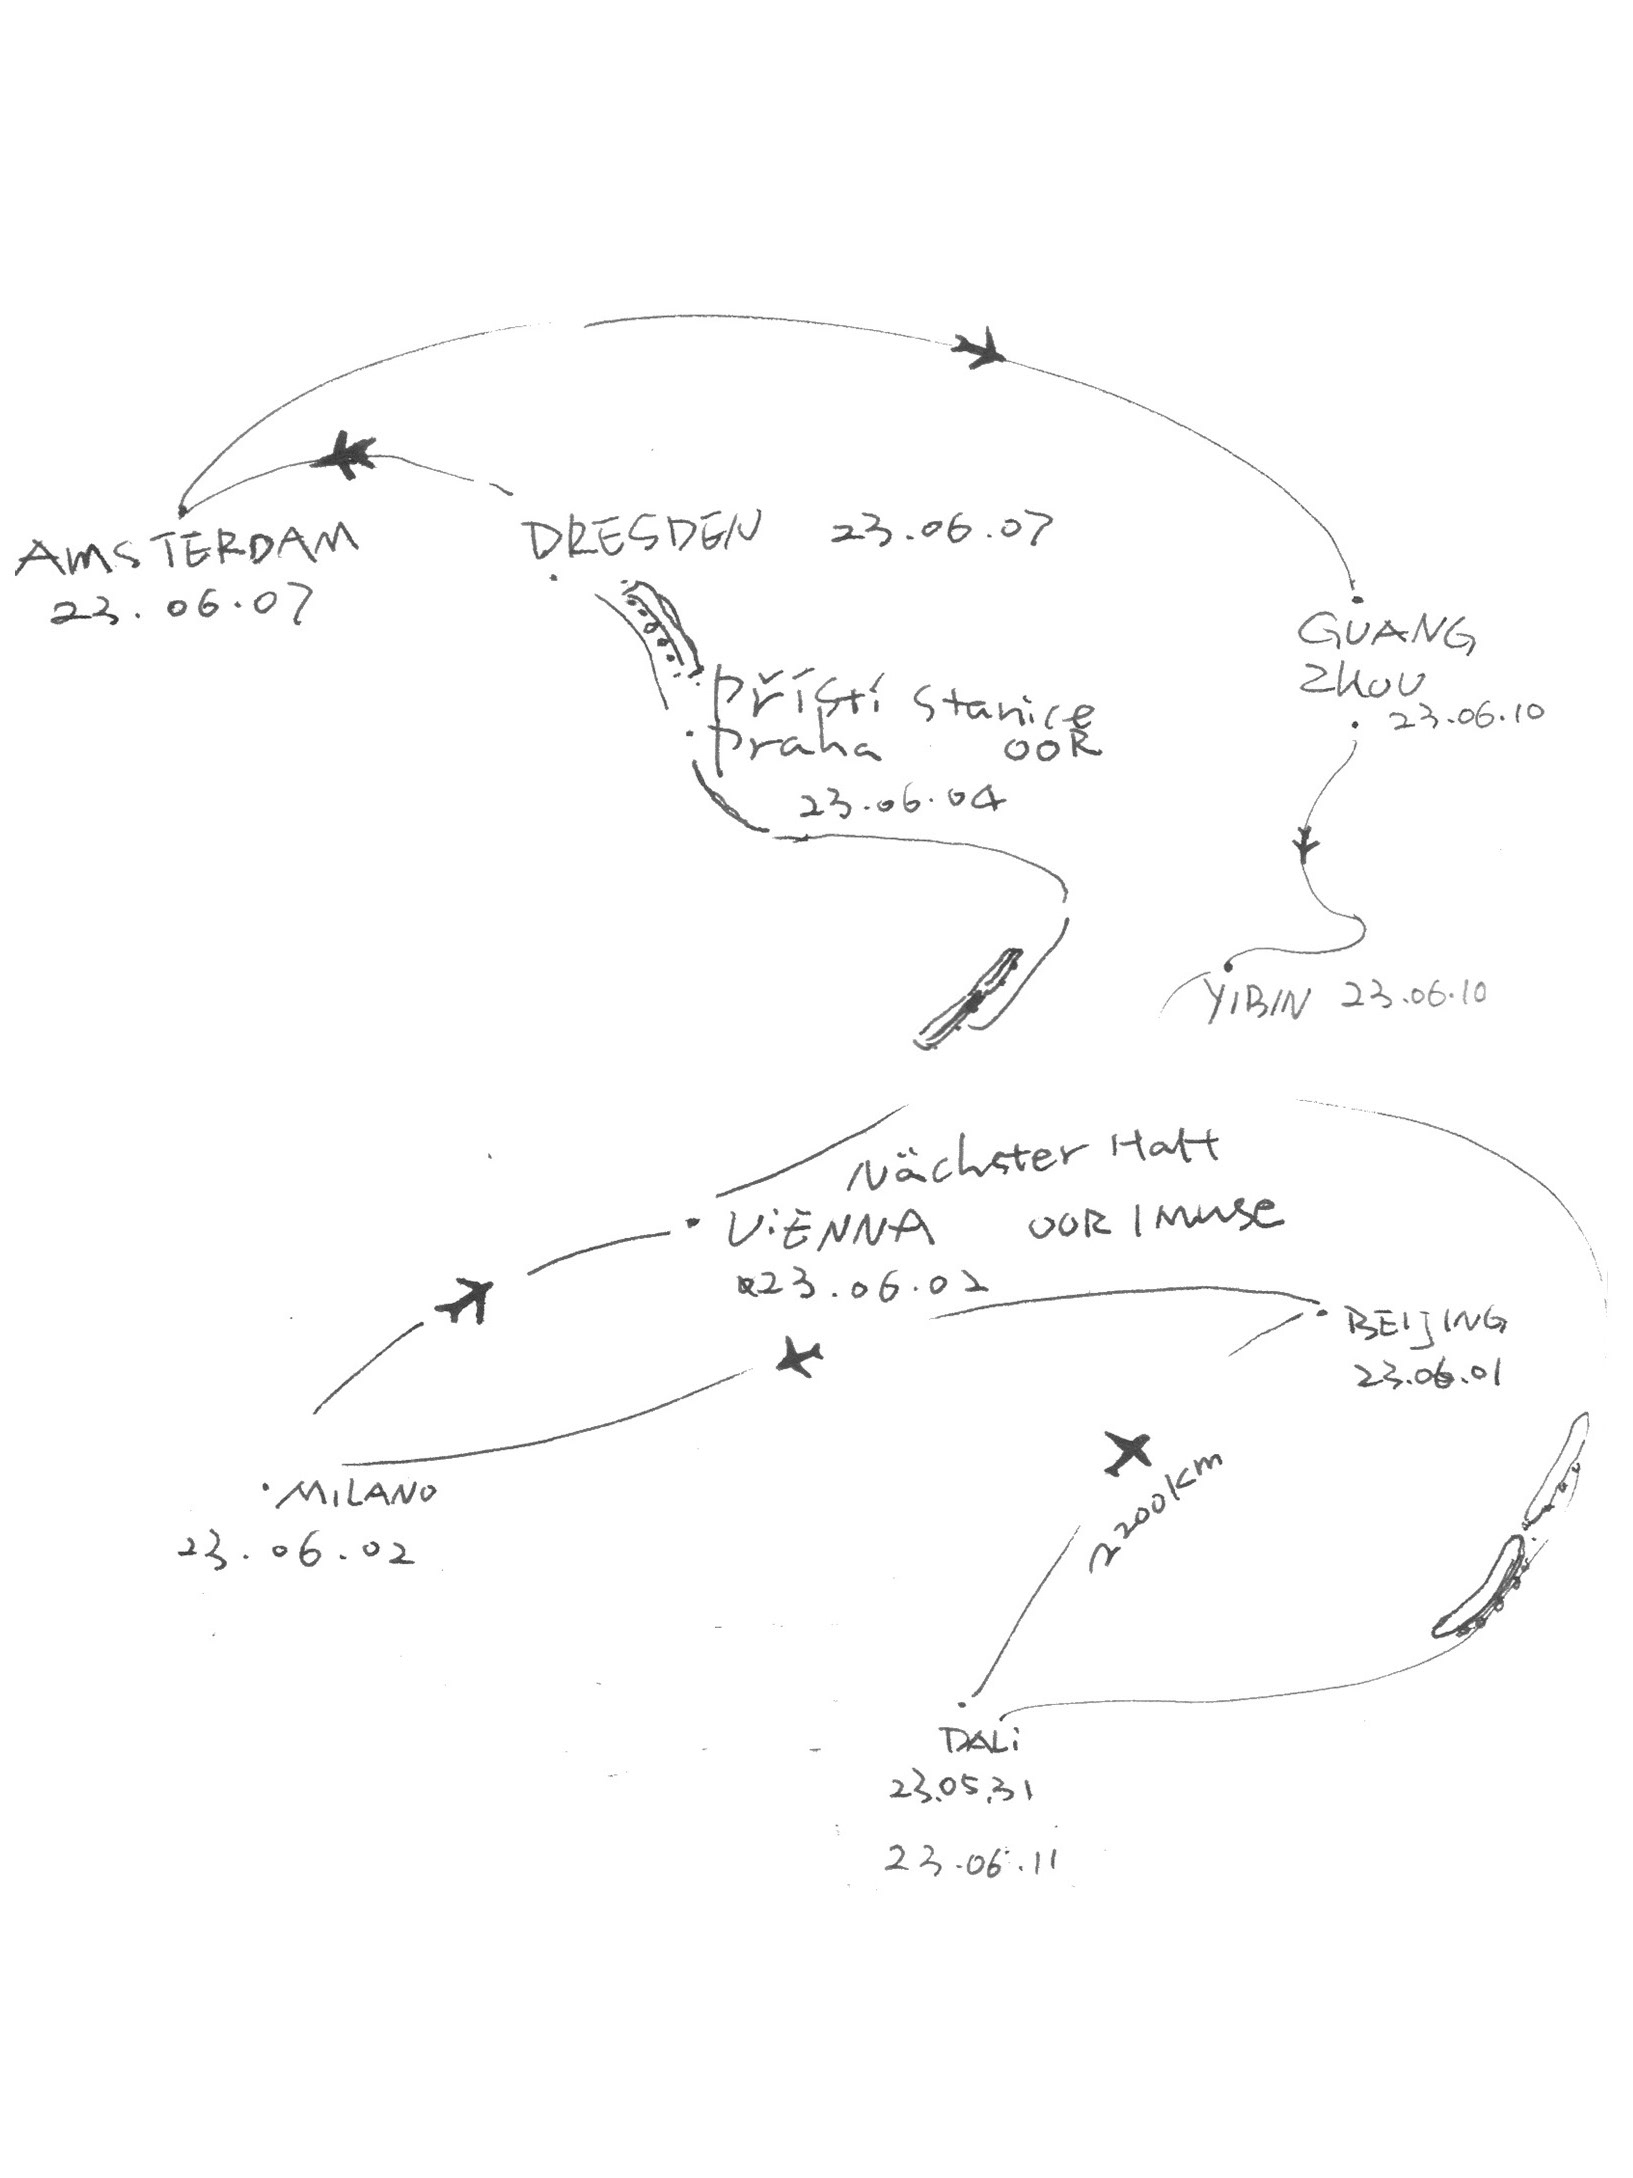 AMSTERDAM
23.06.07
DRESDEN 23.06.07
GUANG
ZHOU
23.06.10
Příští stanice
Praha OOR
23.06.04
YIBIN 23.06.10
Nächster Halt
ViENNA OOR IMUSE
23.06.02
BEIJING
23.06.01
2200km
MILANO
23.06.02
DALi
23.05.31
23.06.11